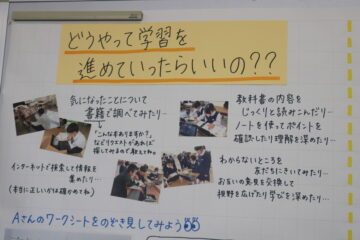 どうやって学習を
進めていったらいいの??
気になったことについて
書籍で調べてみたり…
"こんな本ありますか?"
などリクエストがあれば
探してみるので教えてね
インターネットで検索して情報を
集めたり…
(本当に正しいかは確かめてね)
教科書の内容を
じっくりと読みこんだり…
ノートを使ってポイントを
確認したり理解を深めたり…
わからないところを
友だちにきいてみたり…
お互いの意見を交換して
視野を広げたり学びを深めたり…
Aさんのワークシートをのぞき見してみよう